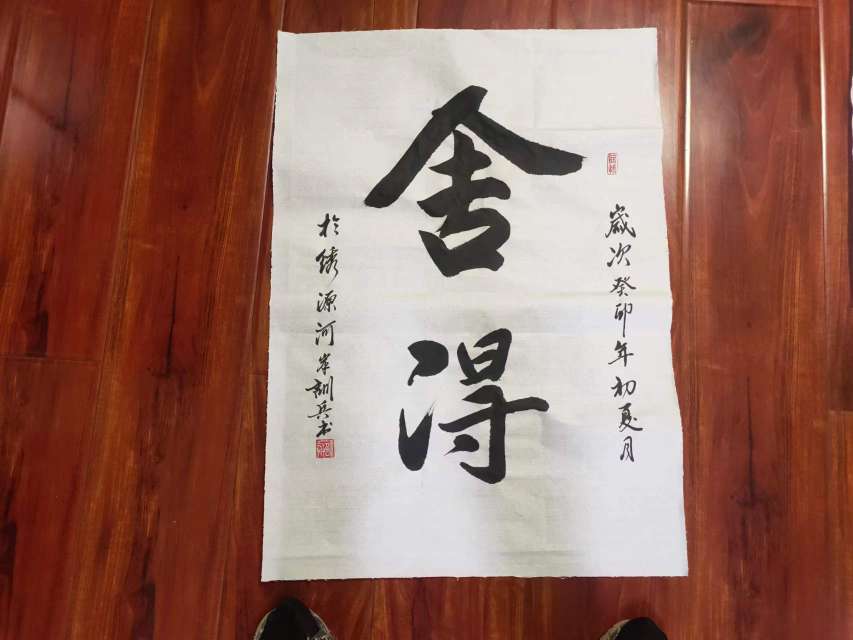 歲次癸卯年初夏月
舍得
於绣源河岸訓兵书